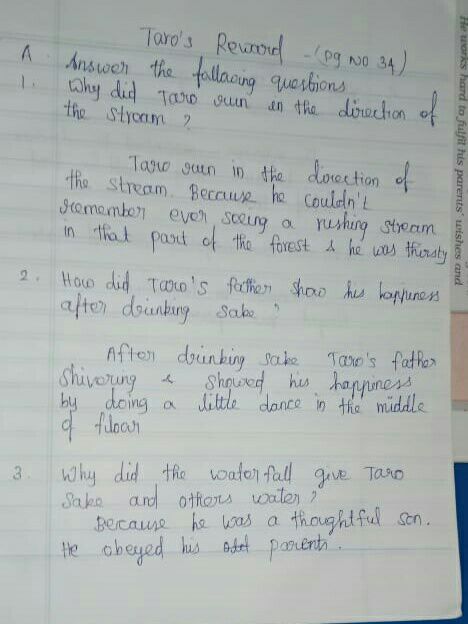 Taro's Reward - (pg NO 34)
A. Answer the fallowing questions
1. Why did Taro run in the direction of
the stream ?
Taro run in the direction of
the stream. Because he couldn't
remember ever seeing a rushing stream
in that part of the forest & he was thirsty
2. How did Taro's father show his happiness
after drinking sake ?
After drinking sake Taro's father
Shivering & showed his happiness
by doing a little dance in the middle
of floar
3. Why did the waterfall give Taro
Sake and others water ?
Because he was a thoughtful son.
He obeyed his parents.
He works hard to fulfil his parents' wishes and